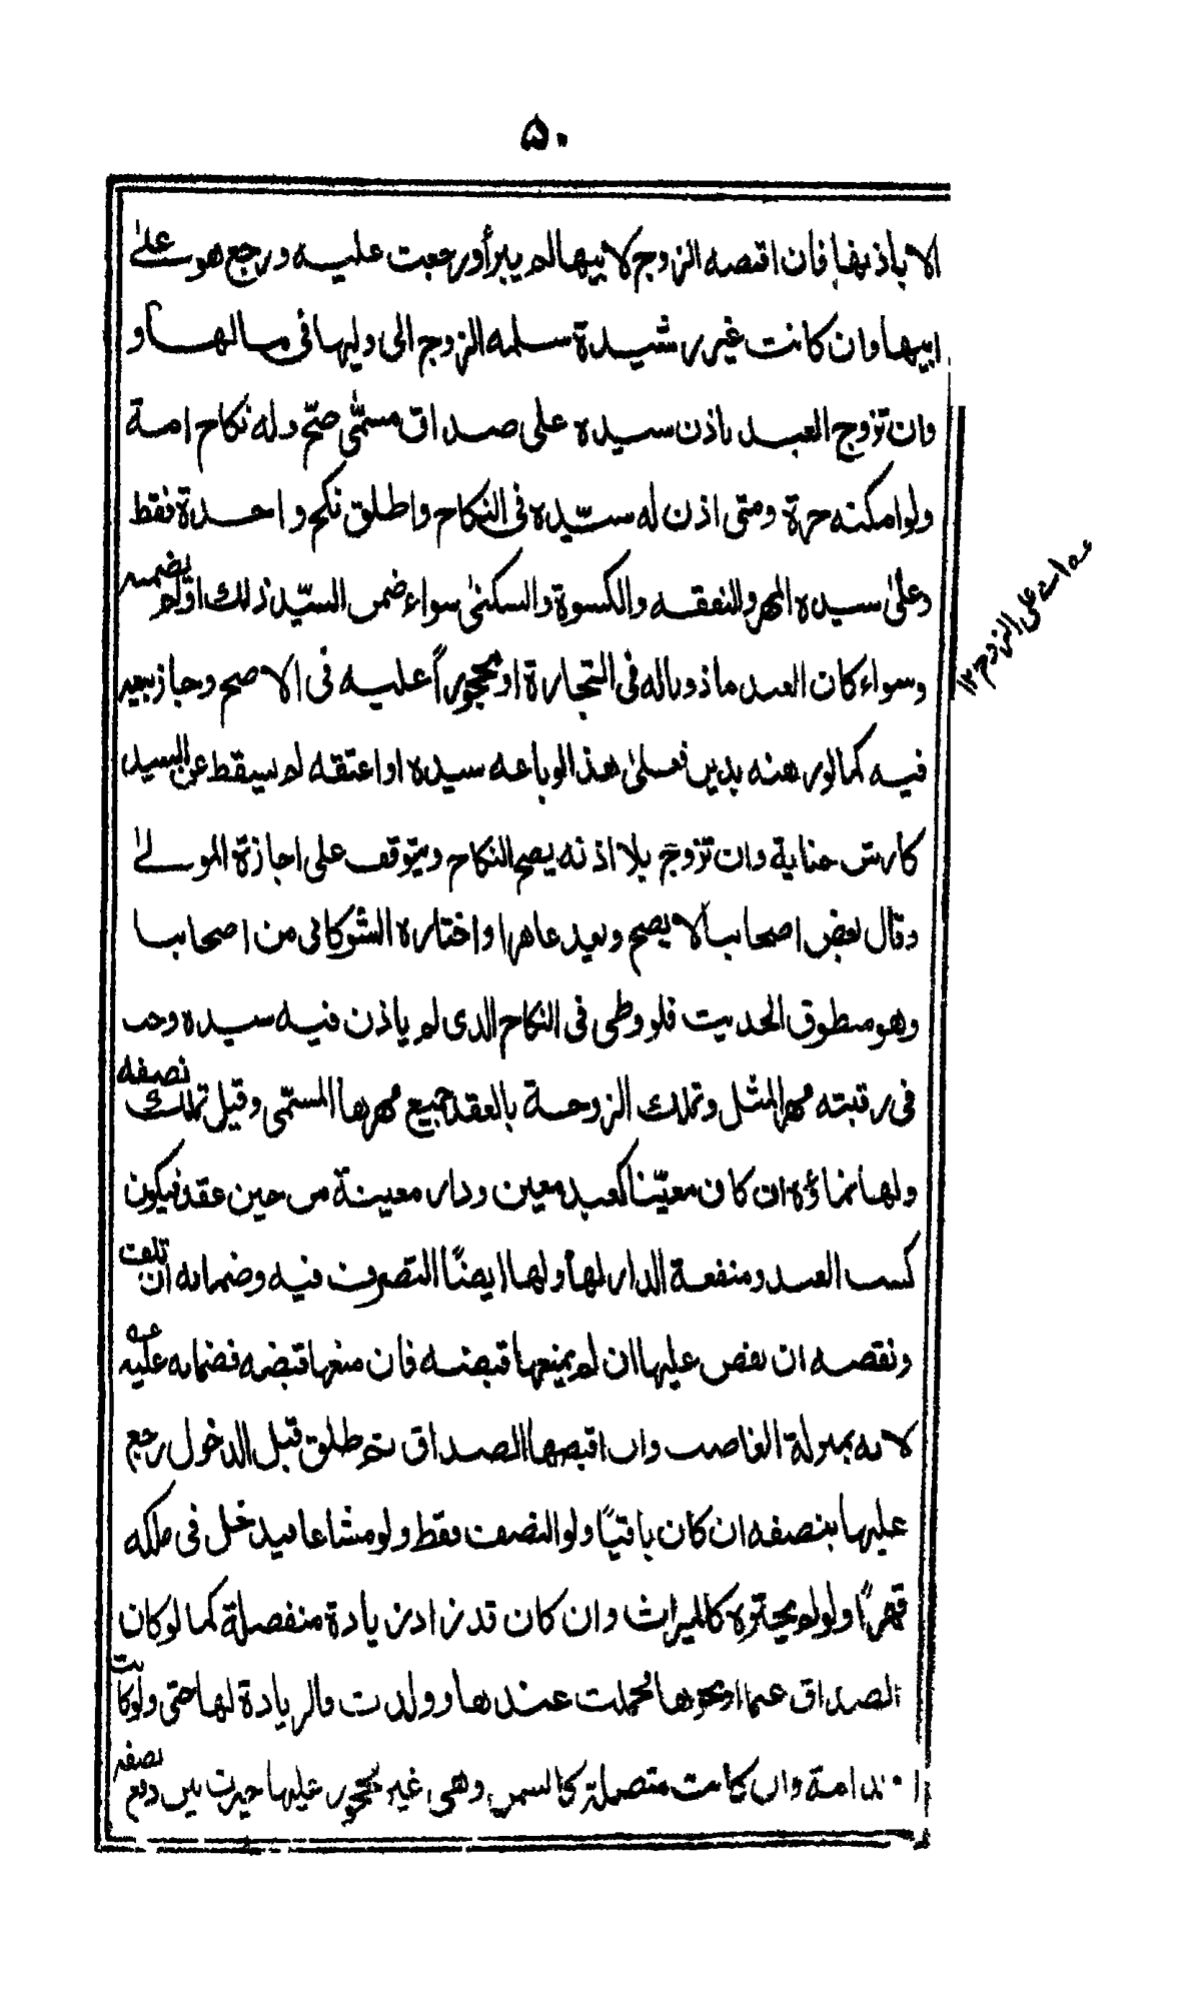 ۵۰
الا باذنها فان اقبضه الزوج لابيها لم يبرأ ورجعت عليه ورجع هو على
ابيها وان كانت غير رشيدة سلمه الزوج الى وليها في مالها و
وان تزوج العبد باذن سيده على صداق مسمّى صحّ وله نكاح امة
ولو امكنه حرة ومتى اذن له سيّده في النكاح واطلق نكح واحدة فقط
وعلى سيده المهر والنفقه والكسوة والسكنى سواء ضمن السيّد ذلك او لم يضمنه
وسواء كان العبد ماذونا له في التجارة او محجوراً عليه في الاصح وجاز بيعه
فيه كما لو رهنه بدين فعلى هذا لو باعه سيده او اعتقه لم يسقط عن السيد
كارش جناية وان تزوج بلا اذنه يصح النكاح ويتوقف على اجازة المولى
وقال بعض اصحابنا لا يصح ويعد عاهرا واختاره الشوكاني من اصحابنا
وهو منطوق الحديث فلو وطى في النكاح الذى لم ياذن فيه سيده وجب
في رقبته مهر المثل وتملك الزوجة بالعقد جميع مهرها المسمّى وقيل تملك نصفه
ولها نماؤه ان كان معيّنا كعبد معين ودار معينة من حين عقد فيكون
كسب العبد ومنفعة الدار لها ولها ايضًا التصرف فيه وضمانه ان تلف
ونقصه ان نقص عليها ان لم يمنعها قبضه فان منعها قبضه فضمانه عليه عـه
لانه بمنزلة الغاصب وان اقبضها الصداق ثم طلق قبل الدخول رجع
عليها بنصفه ان كان باقيًا ولو النصف فقط ولو مشاعا فيدخل في ملكه
قهرًا ولو لم يختره كالميراث وان كان قد زاد زيادة منفصلة كما لو كان
الصداق غنما او نحوها فحملت عندها وولدت فالزيادة لها حتى ولو كانت
امة وان كانت متصلة كالسمن وهى غير محجور عليها خيرت بين دفع نصفه
عـه اے على الزوج ١٢